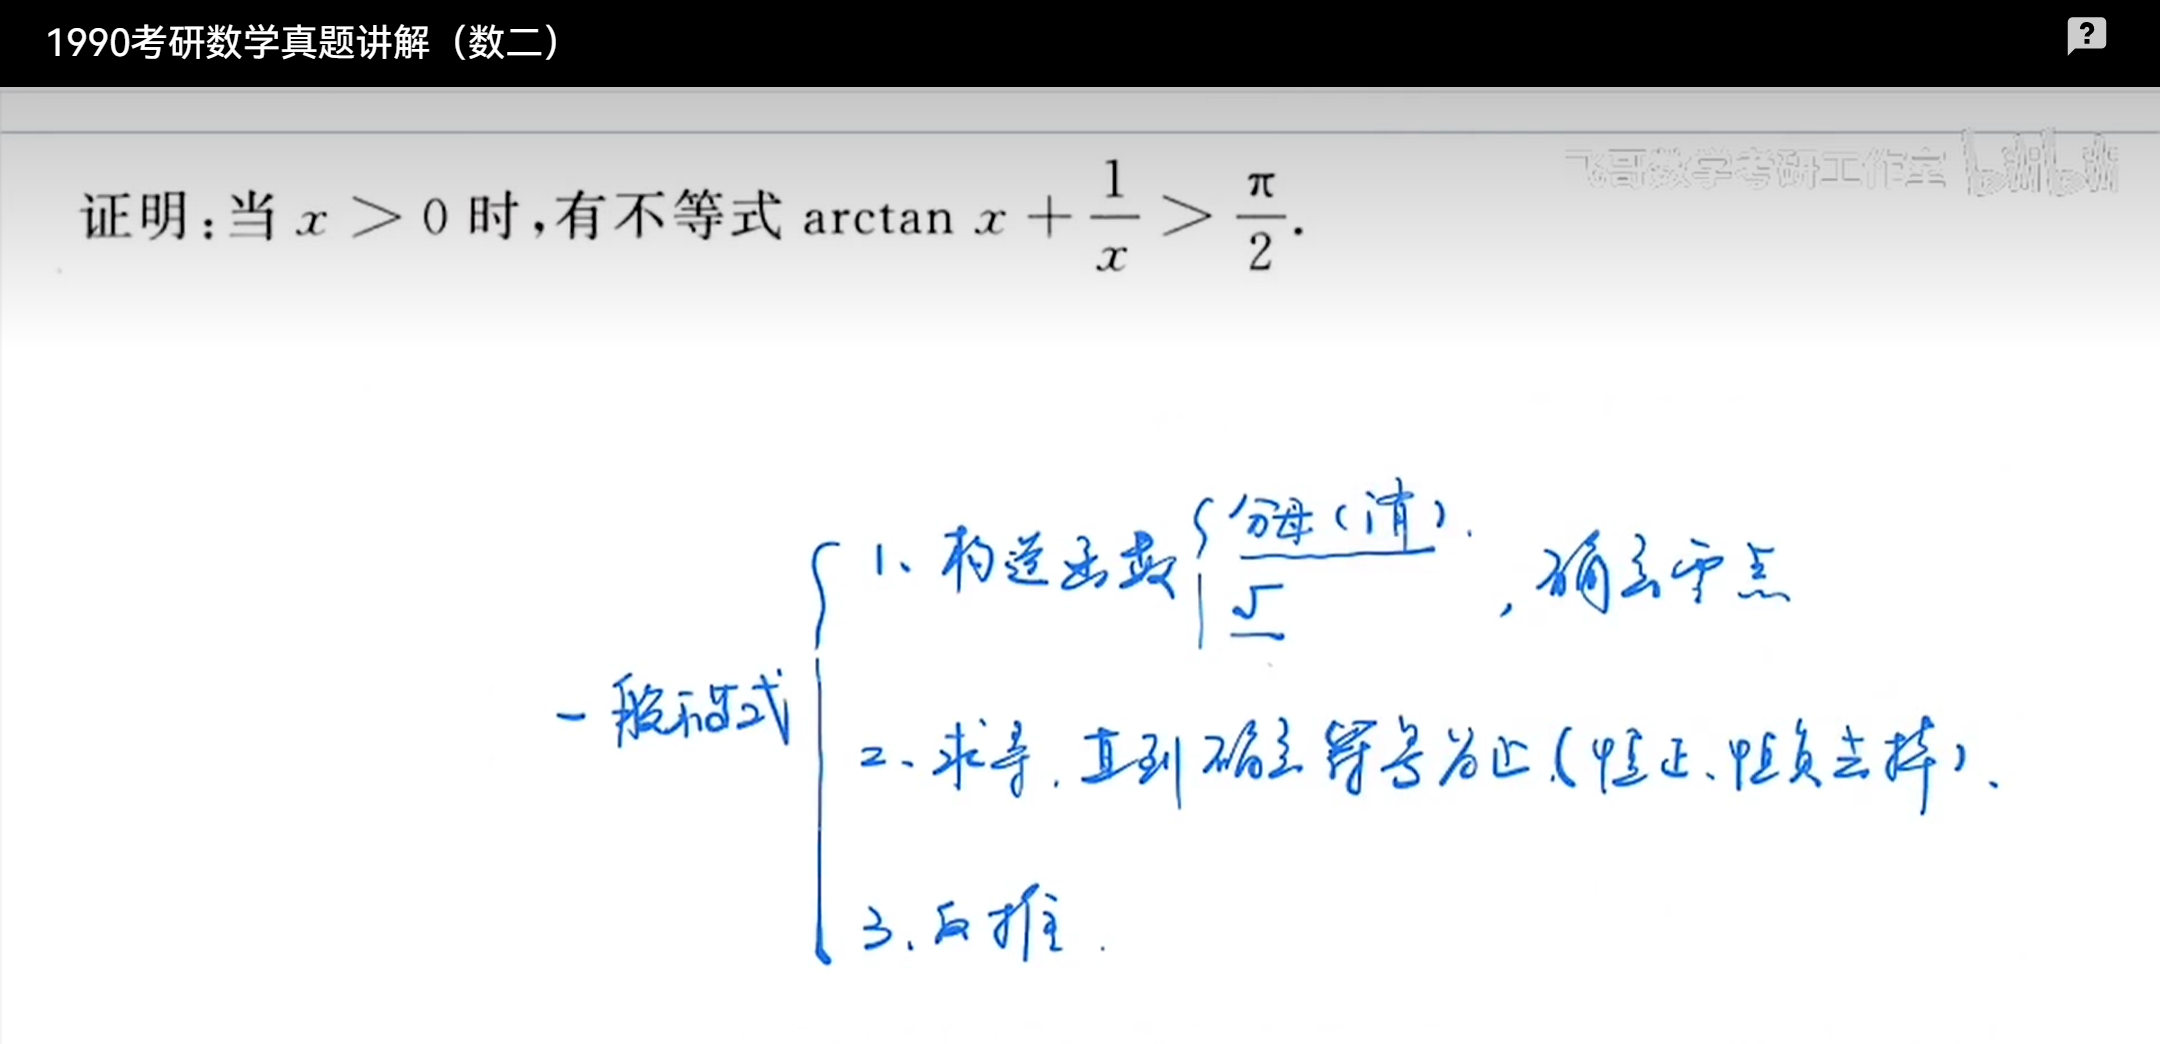 1990考研数学真题讲解（数二）
飞哥数学考研工作室 bilibili
证明:当 x > 0 时,有不等式 arctan x + 1/x > π/2.
一般不等式
1、构造函数 { 分母(消). √ , 确定零点
2、求导.直到确定符号为止(恒正、恒负去掉).
3、反推.